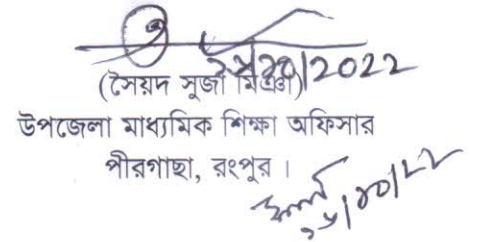 ২৫/১০/2022
(সৈয়দ সুজা মিঞা)
উপজেলা মাধ্যমিক শিক্ষা অফিসার
পীরগাছা, রংপুর ।